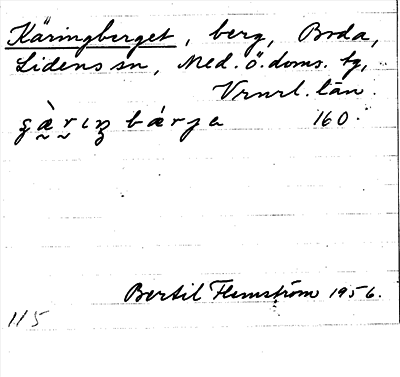 Käringberget, berg, Boda,
Lidens sn, Med. ö. doms. tg,
Vrnrl. län.
bárja 160.
Bertil Flemström 1956.
115